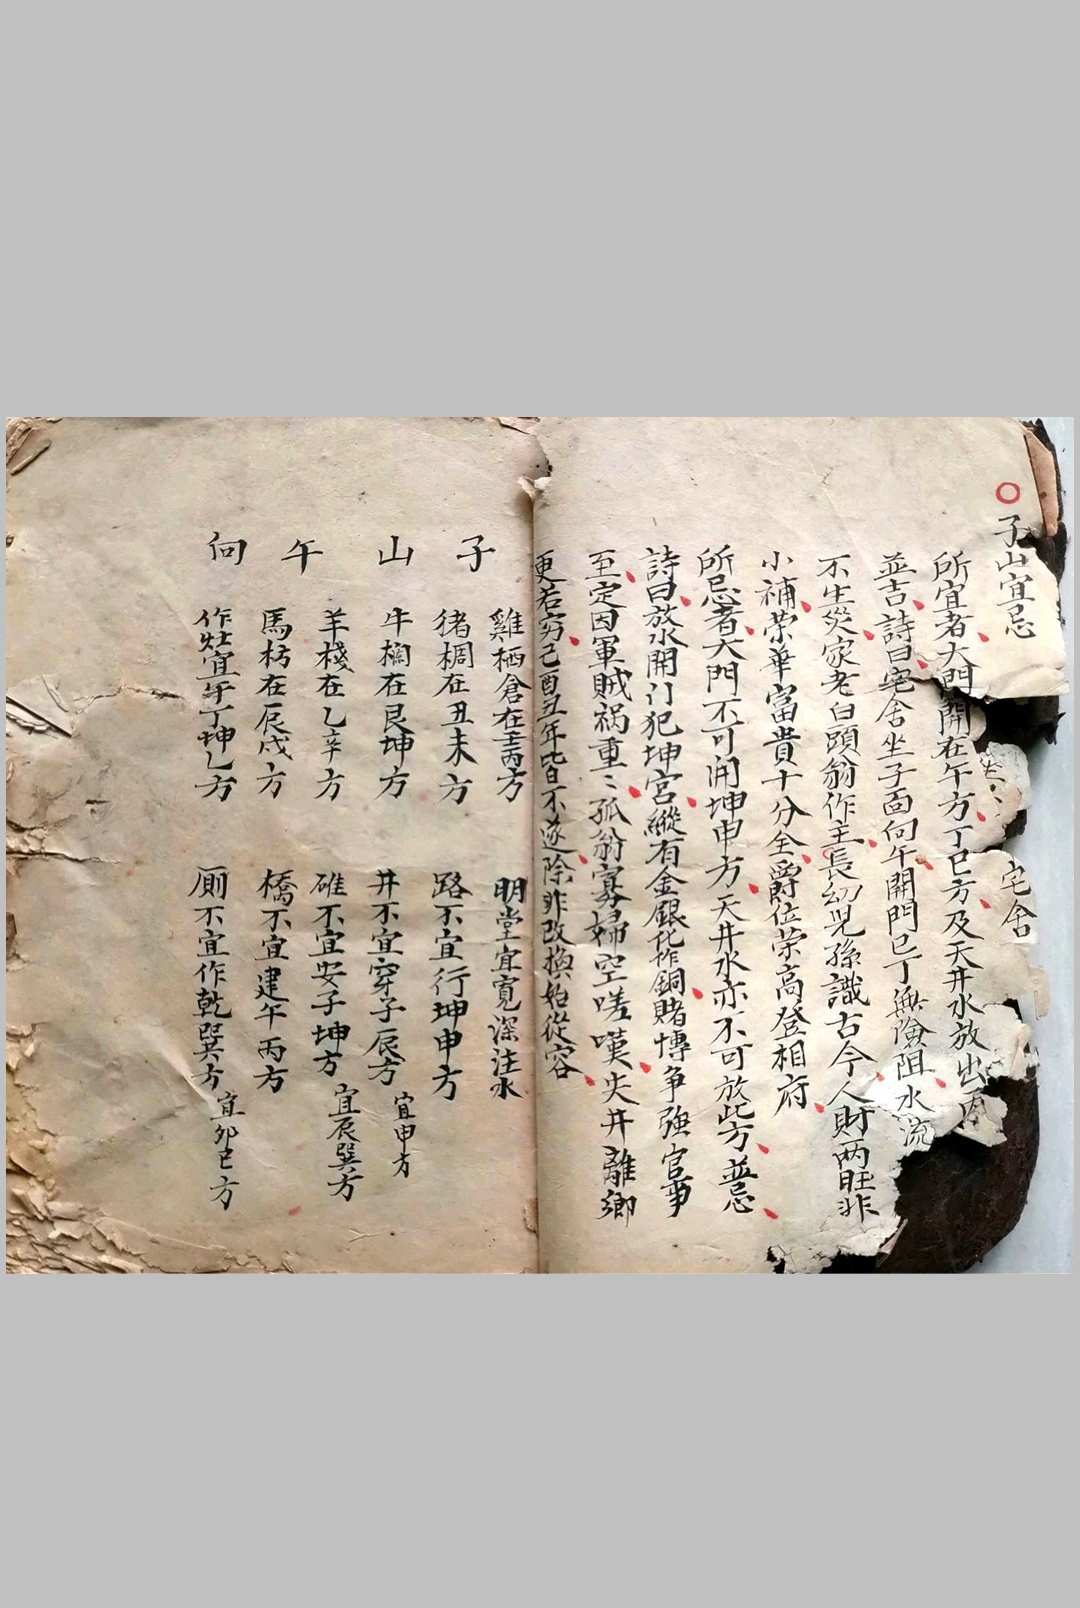 ○子山宜忌
宅舍
所宜者大門開在午方丁巳方及天井水放出丙
並吉詩曰宅舍坐子面向午開門巳丁無險阻水流
不生災家老白頭翁作主長幼兒孫識古今人財两旺非
小補荣華富貴十分全爵位荣高登相府
所忌者大門不可開坤申方天井水亦不可放此方並忌
詩曰放水開门犯坤宫縱有金銀化作銅賭博争强官事
至定因軍賊祸重〻孤翁寡婦空嗟嘆失井離鄉
更若穷己酉丑年皆不遂除非改換始從容
子山午向
雞栖倉在壬丙方
猪椆在丑未方
牛欄在艮坤方
羊棧在乙辛方
馬枋在辰戌方
作灶宜午丁坤乙方
明堂宜寬深注水
路不宜行坤申方
井不宜穿子辰方 宜申方
碓不宜安子坤方 宜辰巽方
橋不宜建午丙方
厠不宜作乾巽方 宜卯巳方